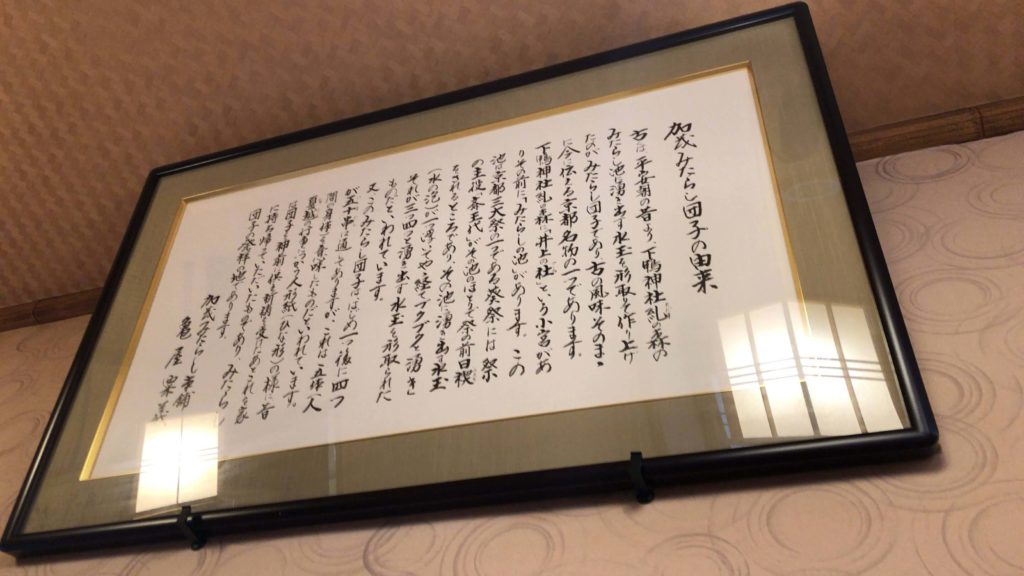 加茂みたらし団子の由来
古は平安朝の昔より下鴨神社糺の森の
みたらし池に湧き出る水玉を形取り作り上げ
たのがみたらし団子であり古の風味そのまゝ
に今に伝える京都名物の一つであります。
下鴨神社糺の森に「井上の社」という小宮があ
りその前に、みたらしの池があります。この
池は京都三大祭の一つである葵祭には祭
の主役斎王代がその池にほとりで祭の前日禊
をされるところであり、その池に湧き出る水玉
(水の泡)が一つ湧きやゝ経てブクブクと湧き
それが三つ四つと湧き出る水玉を形取られた
ものだといわれています。
又このみたらし団子にははじめ一つ後に四つ
が五十串に通してありますが、これは五体(人
間の身体)を意味したものだといわれています。
夏越の神事につかう人形(紙のひな形)の様に昔
は団子を神前に供え祈祷を受けめいめいそれを家
に持ち帰っていただいたものであり、みたらし
団子の発祥の地であります。
加茂みたらし茶舗
亀屋粟義